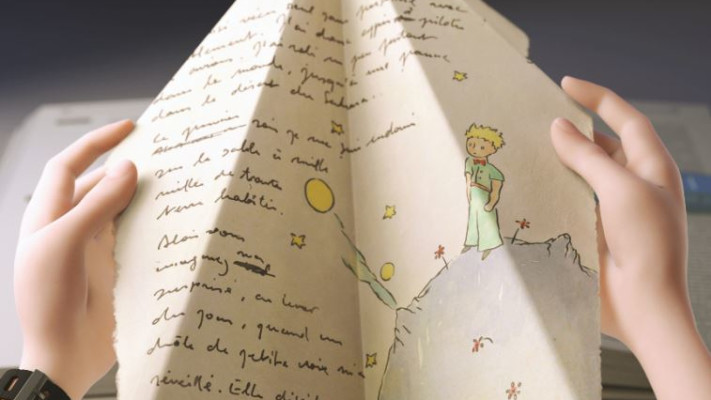 vécu seul sans personne avec
J'ai donc appris à piloter
avions. J'ai volé un peu partout
dans le monde, jusqu'à une panne
dans le désert du Sahara.
Le premier soir je me suis endormi
sur le sable à mille
milles de toute
terre habitée.
Alors vous
imaginez ma
surprise, au lever
du jour, quand une
drôle de petite voix m'a
réveillé. Elle disait